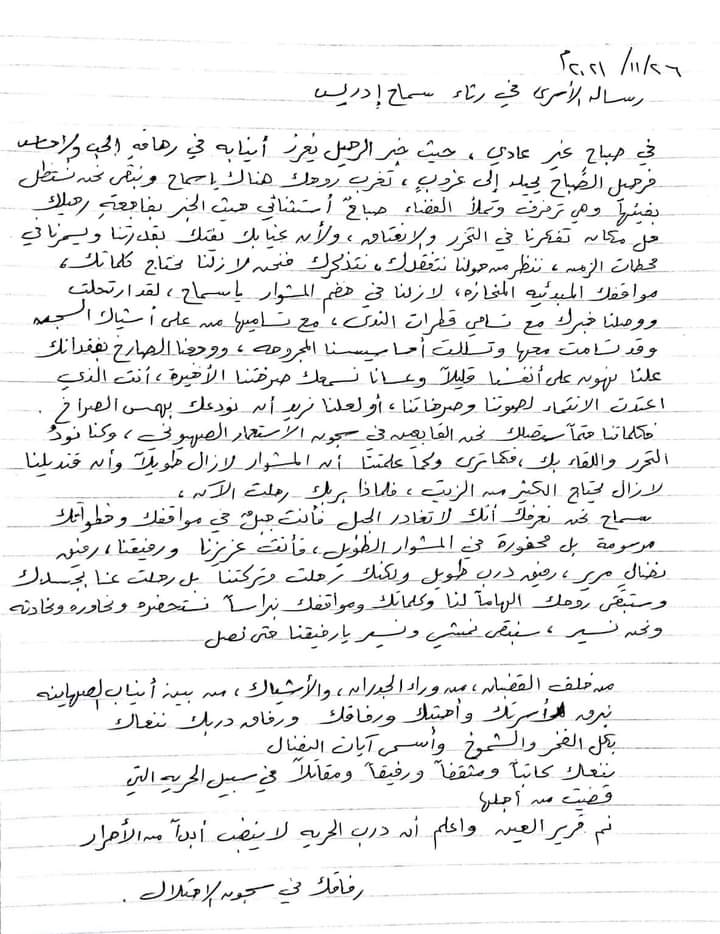 ٢٠٢١/١١/٢٦م
رسالة الأسرى في رثاء سماح إدريس
في صباح غير عادي، حيث خبر الرحيل يُغرز أنيابه في رهافة الحب والإحساس
فرحيل الصباح يحيله إلى غروب، تغرب روحك هناك يا سماح ونبقى نحن نستظل
بفيئها وهي ترفرف وتملأ الفضاء صباحٌ استثنائي حيث الخبر بفاجعة رحيلك
حل مكان تفكرنا في التحرر والانعتاق، ولأن غيابك يفتك بقدرتنا ويسمرنا في
محطات الزمن، ننظر من حولنا نتفقدك، نتذكرك فنحن لا زلنا نحتاج كلماتك،
مواقفك المبدئية المنحازة، لازلنا في خضم المشوار يا سماح، لقد ارتحلت
ووصلنا خبرك مع تسامي قطرات الندى، مع تساميها من على أشياك السجن
وقد تسامت معها وتسللت أحاسيسنا المجروحة، ووجعنا الصارخ بفقدانك
علنا نهون على أنفسنا قليلاً وعسانا نسمعك صرختنا الأخيرة، أنت الذي
اعتدت الانتماء لصوتنا وصرخاتنا، أو لعلنا نريد أن نودعك بهمس الصراخ.
فكلماتنا حتماً ستصلك نحن القابعين في سجون الاستعمار الصهيوني، وكنا نودُ
التحرر واللقاء بك، فكما ترى وكما علمتنا أن المشوار لازال طويلاً وأن قنديلنا
لازال يحتاج الكثير من الزيت، فلماذا بربك رحلت الآن،
سماح نحن نعرفك أنك لا تغادر الجبل فأنت جبلٌ في مواقفك وخطواتك
مرسومة بل محفورة في المشوار الطويل، فأنت عزيزنا ورفيقنا، رفيق
نضالي مرير، رفيق درب طويل ولكنك ترحلت وتركتنا بل رحلت عنا بجسدك
وستبقى روحك الهاماً لنا وكلماتك ومواقفك نبراساً نستحضره ونحاوره ونحادثه
ونحن نسير، سنبقى نمشي ونسير يا رفيقنا حتى نصل
من خلف القضبان، من وراء الجدران، والأشياك، من بين أنياب الصهاينة
نبرق لأسرتك وأحبتك ورفاقك ورفاق دربك ننعاك
بكل الفخر والشموخ وأسمى آيات النضال
ننعاك كاتباً ومثقفاً ورفيقاً ومقاتلاً في سبيل الحرية التي
قضيت من أجلها
نم قرير العين واعلم أن درب الحرية لا ينضب أبداً من الأحرار
رفاقك في سجون الاحتلال.